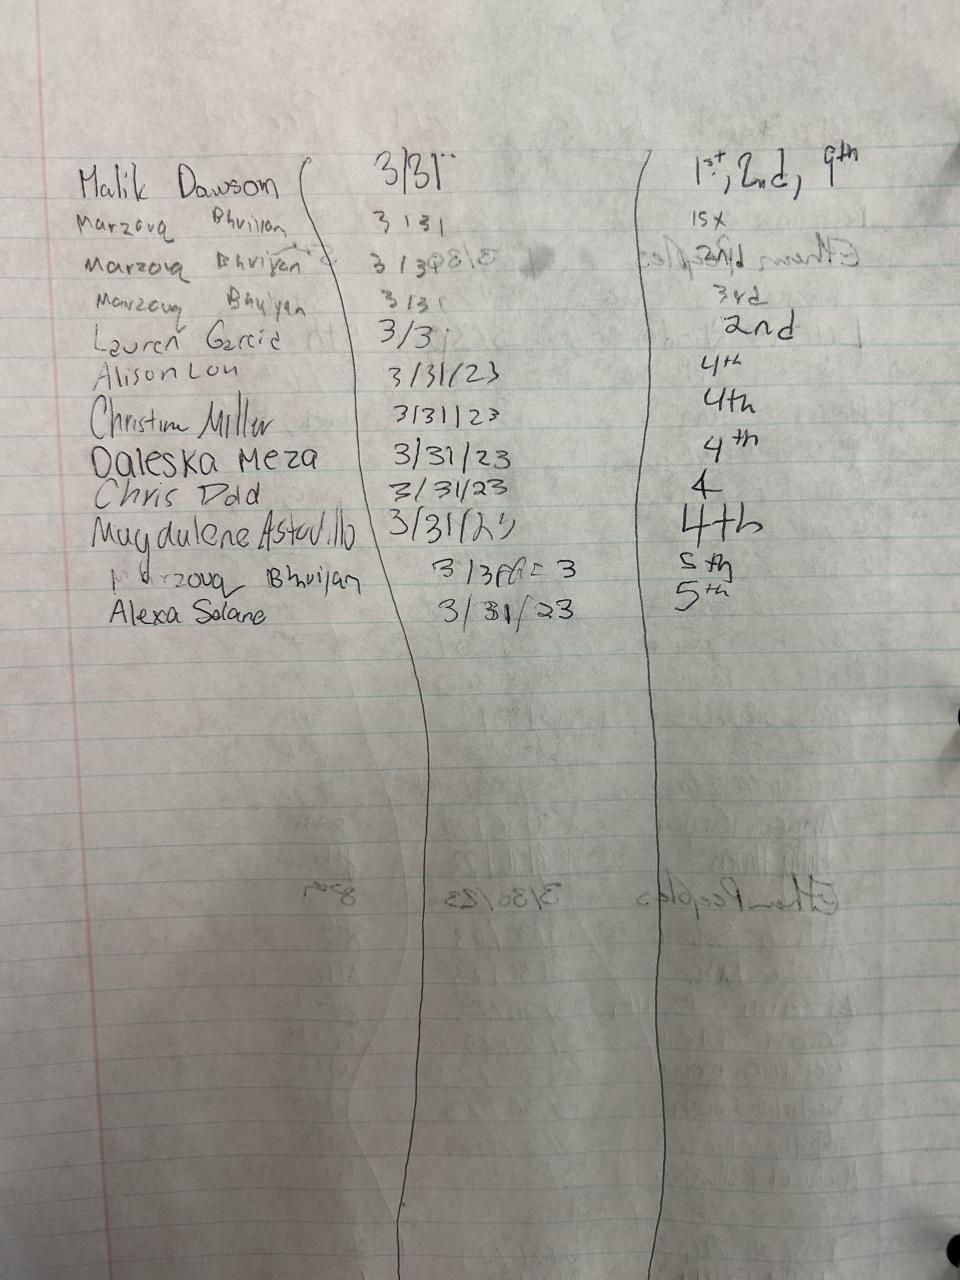 Malik Dawson 3/31 1st, 2nd, 9th
Marzouq Bhuiyan 3/31 1st
Marzouq Bhuiyan 3/31 2nd
Marzouq Bhuiyan 3/31 3rd
Lauren Garcia 3/31 2nd
Alison Lou 3/31/23 4th
Christina Miller 3/31/23 4th
Daleska Meza 3/31/23 4th
Chris Dold 3/31/23 4
Magdalene Astudillo 3/31/23 4th
Marzouq Bhuiyan 5th
Alexa Solano 3/31/23 5th
Ethan Peeples 3/30/23 8th